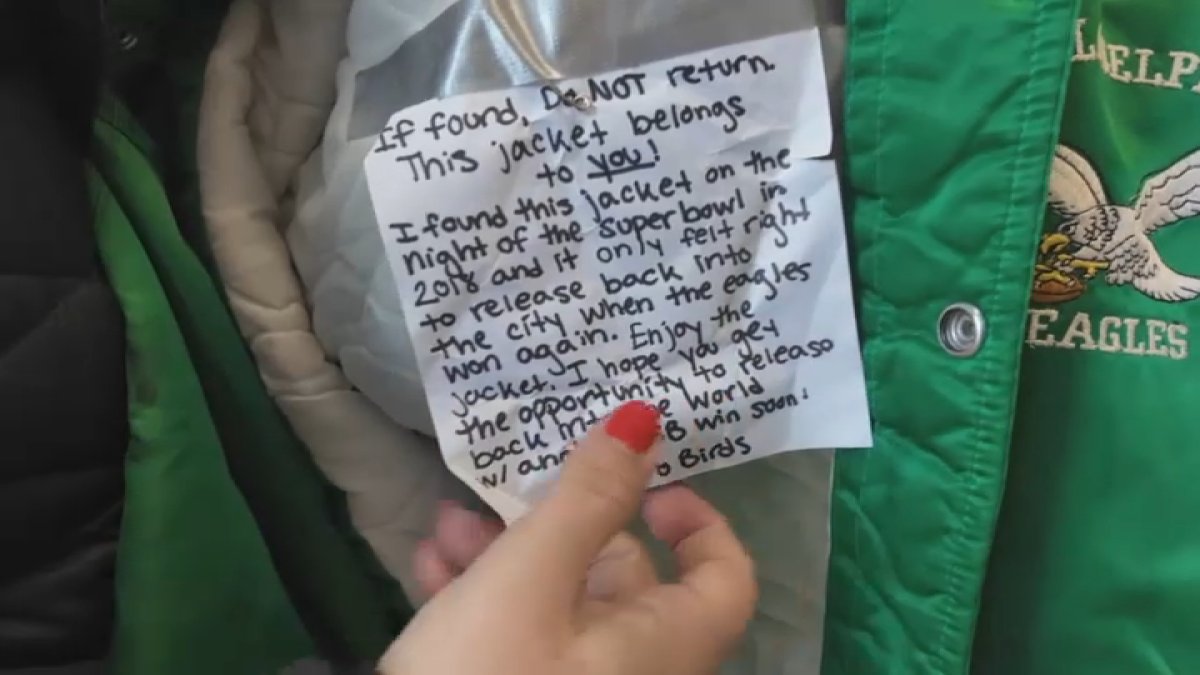 If found, Do NOT return.
This jacket belongs
to you!
I found this jacket on the
night of the superbowl in
2018 and it only felt right
to release back into
the city when the eagles
won again. Enjoy the
jacket. I hope you get
the opportunity to release
back into World
w/ win soon!
Birds
EAGLES